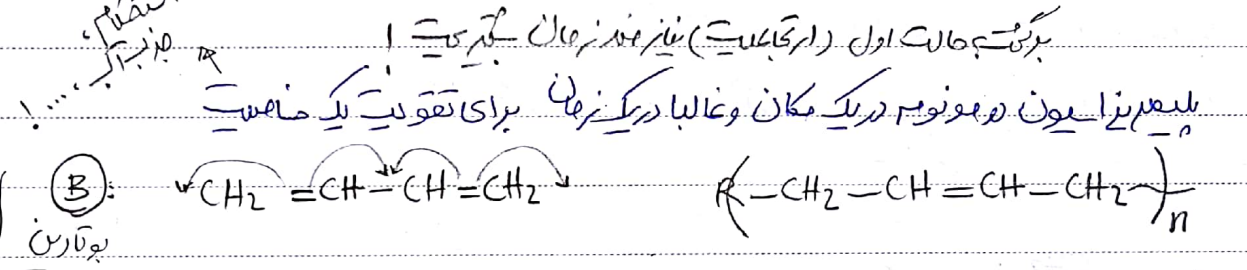 برگشت به حالت اول (ارتجاعیت) نیازمند زمان بیشتریست !
استحکام،
جذب آب، .... !
پلیمریزاسیون دو مونومر در یک مکان و غالبا در یک زمان برای تقویت یک خاصیت
B: CH2 = CH – CH = CH2 (– CH2 – CH = CH – CH2 –)n
بوتادین